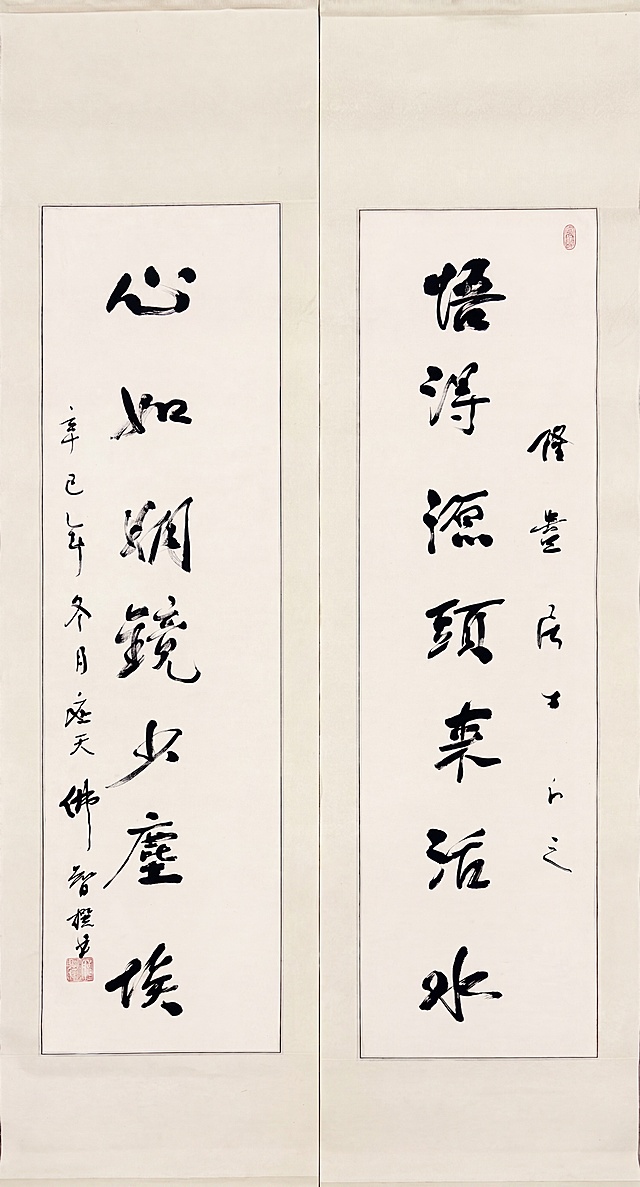 隆豊居士正之
悟得源頭來活水
心如明鏡少塵埃
辛巳年冬月蓝天佛智撰書